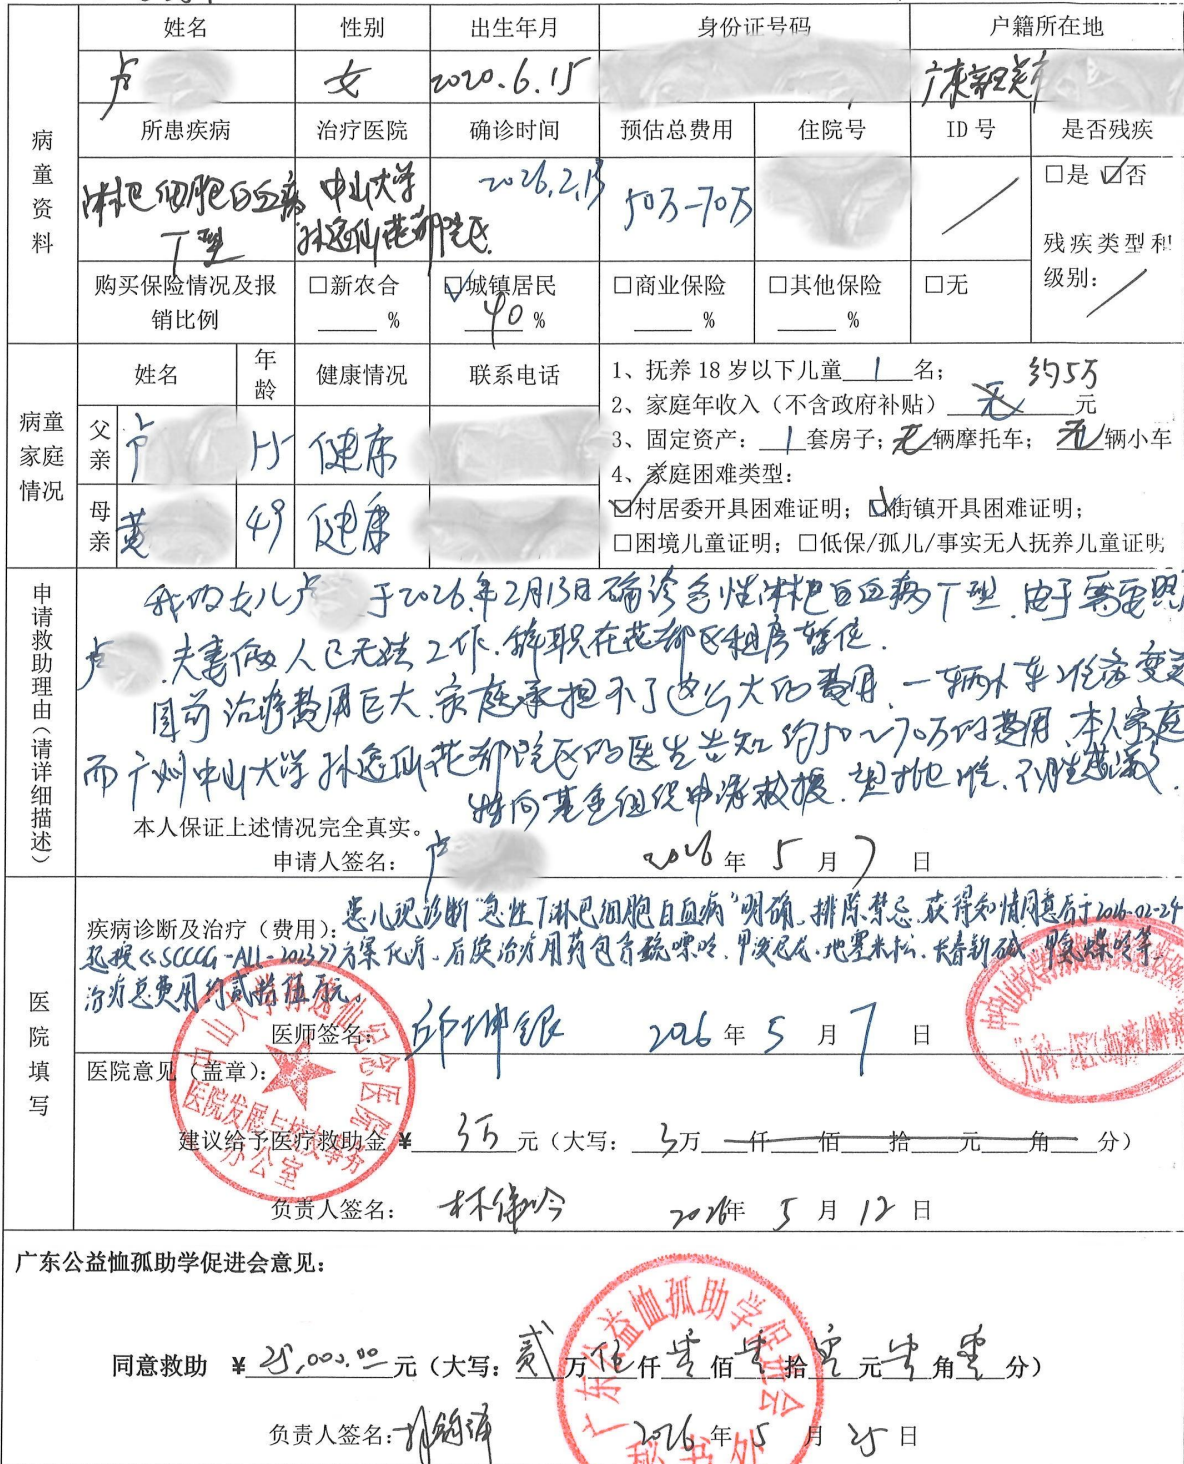 姓名 性别 出生年月 身份证号码 户籍所在地
卢 女 2020.6.15 广东韶关市
病童资料
所患疾病 治疗医院 确诊时间 预估总费用 住院号 ID 号 是否残疾
淋巴细胞白血病 T型 中山大学孙逸仙花都院区. 2026.2.13 50万-70万 □是 ☑否
残疾类型和级别:
购买保险情况及报销比例 □新农合 % ☑城镇居民 40 % □商业保险 % □其他保险 % □无
病童家庭情况
姓名 年龄 健康情况 联系电话
父亲 卢 健康
母亲 黄 49 健康
1、抚养 18 岁以下儿童 1 名;
2、家庭年收入(不含政府补贴) 约5万 元
3、固定资产: 1 套房子; 无 辆摩托车; 无 辆小车
4、家庭困难类型:
☑村居委开具困难证明; ☑街镇开具困难证明;
□困境儿童证明; □低保/孤儿/事实无人抚养儿童证明
申请救助理由(请详细描述)
我的女儿卢 于2026年2月13日确诊急性淋巴白血病T型.由于需要照
卢 .夫妻俩人已无法工作.辞职在花都区租房暂住.
目前治疗费用巨大.家庭承担不了这么大的费用.一辆小车
而广州中山大学孙逸仙花都院区的医生告知约50~70万的费用.本人家庭
特向基金组织申请救援.望批准.不胜感激.
本人保证上述情况完全真实。
申请人签名: 卢 2026 年 5 月 7 日
医院填写
疾病诊断及治疗(费用): 患儿现诊断“急性T淋巴细胞白血病”明确,排除禁忌,获得知情同意后于2026-02-24
起按《SCCCG-ALL-2023》方案化疗,后续治疗用药包含巯嘌呤,甲泼尼龙,地塞米松,长春新碱,
治疗总费用约贰拾伍万元。
医师签名: 2026 年 5 月 7 日
中山大学孙逸仙纪念医院
医院发展与校友事务
办公室
医院意见(盖章):
建议给予医疗救助金 ¥ 3万 元(大写: 3 万 仟 佰 拾 元 角 分)
负责人签名: 2026年 5 月 12 日
广东公益恤孤助学促进会意见:
同意救助 ¥ 25,000.00 元(大写: 贰 万 伍 仟 零 佰 零 拾 零 元 零 角 零 分)
负责人签名: 2026 年 5 月 25 日
广东公益恤孤助学促进会
秘书处